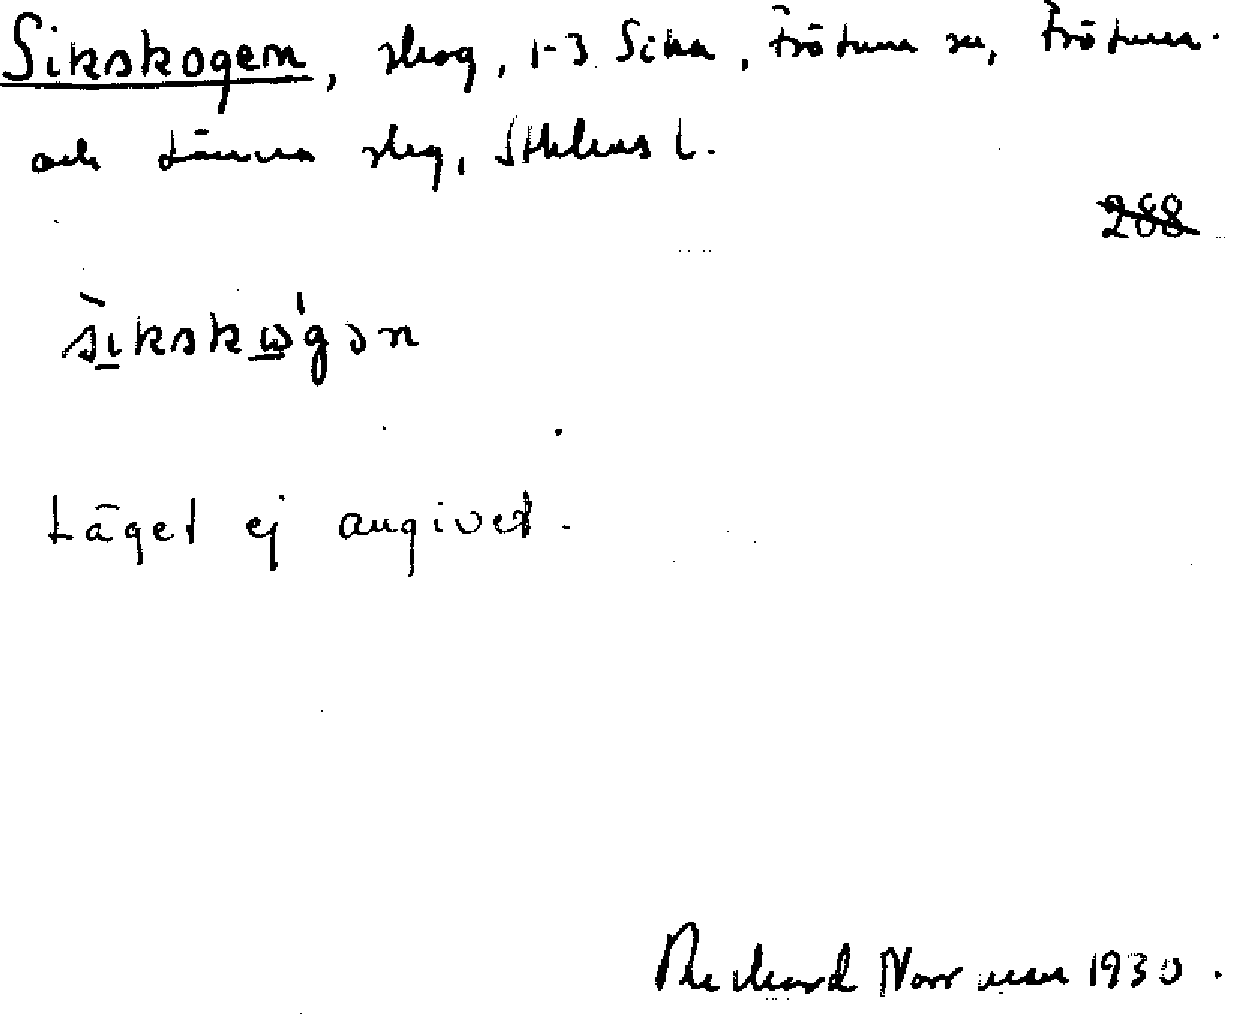 Sikskogen, skog, 1-3 Sika, Frötuna sn, Frötuna
och Länna skg, Sthlms l.
288
sıkskɷgən
Läget ej angivet.
Richard Norrman 1930.